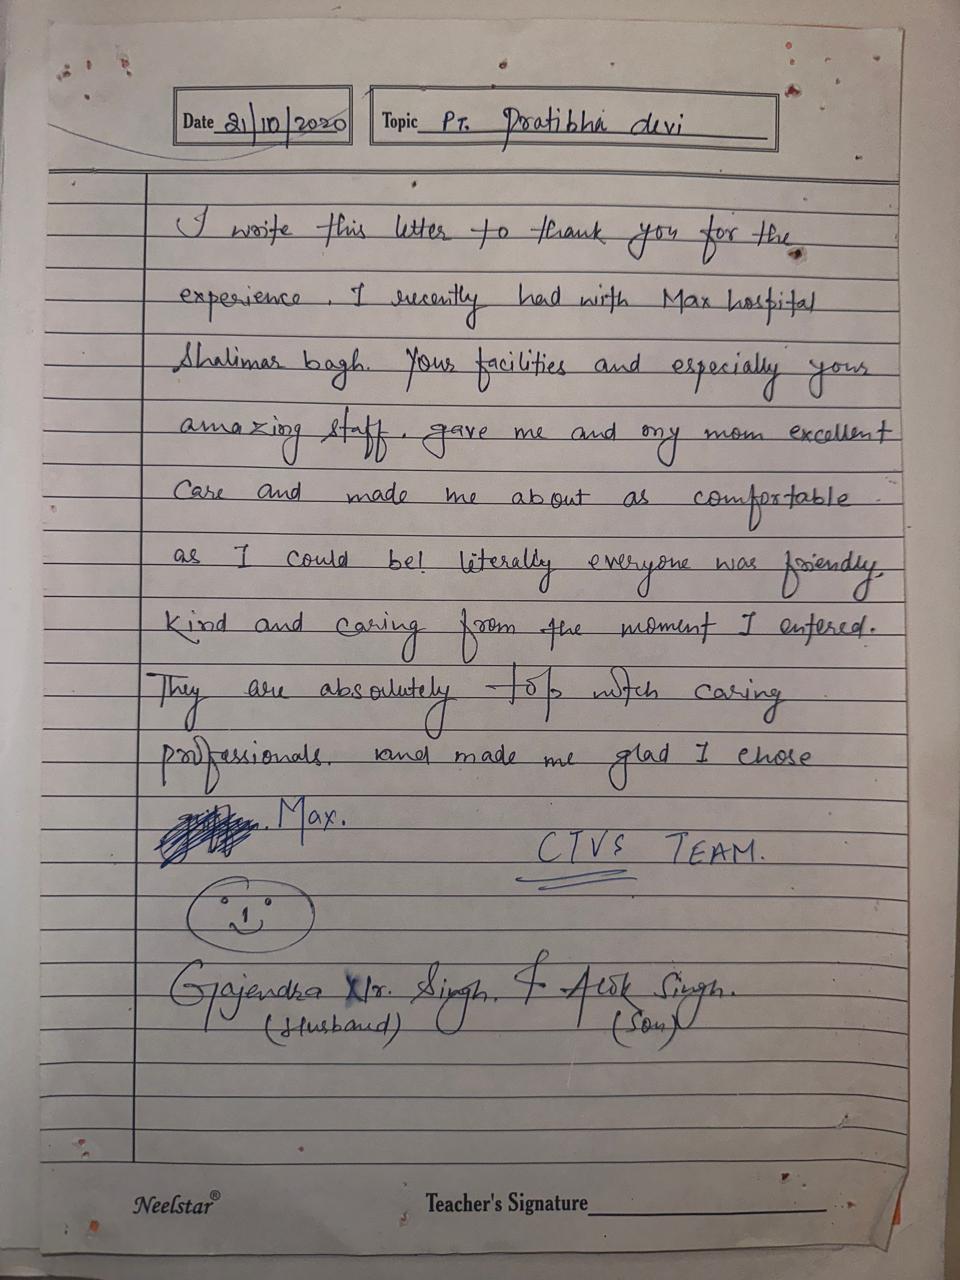 Date 21/10/2020 Topic PT. Pratibha devi
I write this letter to thank you for the
experience. I recently had with Max hospital
Shalimar bagh. Your facilities and especially your
amazing staff. gave me and my mom excellent
Care and made me about as comfortable
as I could be! literally everyone was friendly,
Kind and caring from the moment I entered.
They are absolutely top notch caring
professionals. and made me glad I chose
. Max.
CTVS TEAM.
Gajendra Kr. Singh. & Alok Singh.
(Husband) (Son)
Neelstar® Teacher's Signature